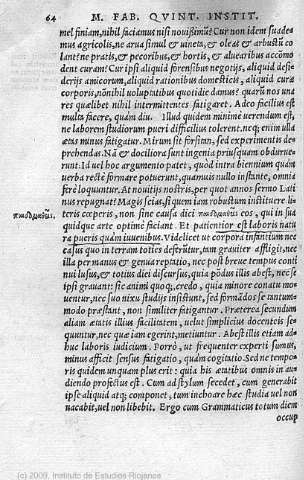 64 M. FAB. QVINT. INSTIT.
mel finiam, nihil faciamus nisi nouißimũ? Cur non idem suade-
mus agricolis, ne arua simul & uineta, & oleas & arbustũ co
lant? ne pratis, & pecoribus, & hortis, & aluearibus accõmo
dent curam? Cur ipsi aliquid forensibus negotijs, aliquid deside
rijs amicorum, aliquid rationibus domesticis, aliquid curæ
corporis, nõnihil uoluptatibus quotidie damus? quarũ nos una
res quælibet nihil intermittentes fatigaret. Adeo facilius est
multa facere, quàm diu. Illud quidem minimè uerendum est,
ne laborem studiorum pueri difficilius tolerent. neq; enim ulla
ætas minus fatigatur. Mirum sit forsitan, sed experimentis de
prehendas. Nã & dociliora sunt ingenia priusquàm obdurue-
runt. Id uel hoc argumento patet, quòd intra biennium quàm
uerba rectè formare potuerunt, quamuis nullo instante, omnia
ferè loquuntur. At nouitijs nostris, per quot annos sermo Lati
nus repugnat? Magis scias, si quem iam robustum instituere li-
teris cœperis, non sine causa dici παιδομαθεῖς eos, qui in sua
παιδομαθεῖς.
quidque arte optimè faciant. Et patientior est laboris natu
ra pueris quàm iuuenibus. Videlicet ut corpora infantium nec
casus quo in terram toties deferũtur, tam grauiter affligit, nec
illa per manus & genua reptatio, nec post breue tempus conti
nui lusus, & totius diei discursus, quia põdus illis abest, nec se
ipsi grauant: sic animi quoq;, credo, quia minore conatu mo-
uentur, nec suo nixu studijs insistunt, sed formãdos se tantum-
modo præstant, non similiter fatigantur. Præterea secundum
aliam ætatis illius facilitatem, uelut simplicius docentis se-
quuntur, nec quæ iam egerint, metiuntur. Abest illis etiam ad-
huc laboris iudicium. Porrò, ut frequenter experti sumus,
minus afficit sensus fatigatio, quàm cogitatio. Sed ne tempo-
ris quidem unquam plus erit: quia his ætatibus omnis in au-
diendo profectus est. Cum ad stylum secedet, cum generabit
ipse aliquid atq; componet, tum inchoare hæc studia uel non
uacabit, uel non libebit. Ergo cum Grammaticus totum diem
occup
(c) 2009. Instituto de Estudios Riojanos